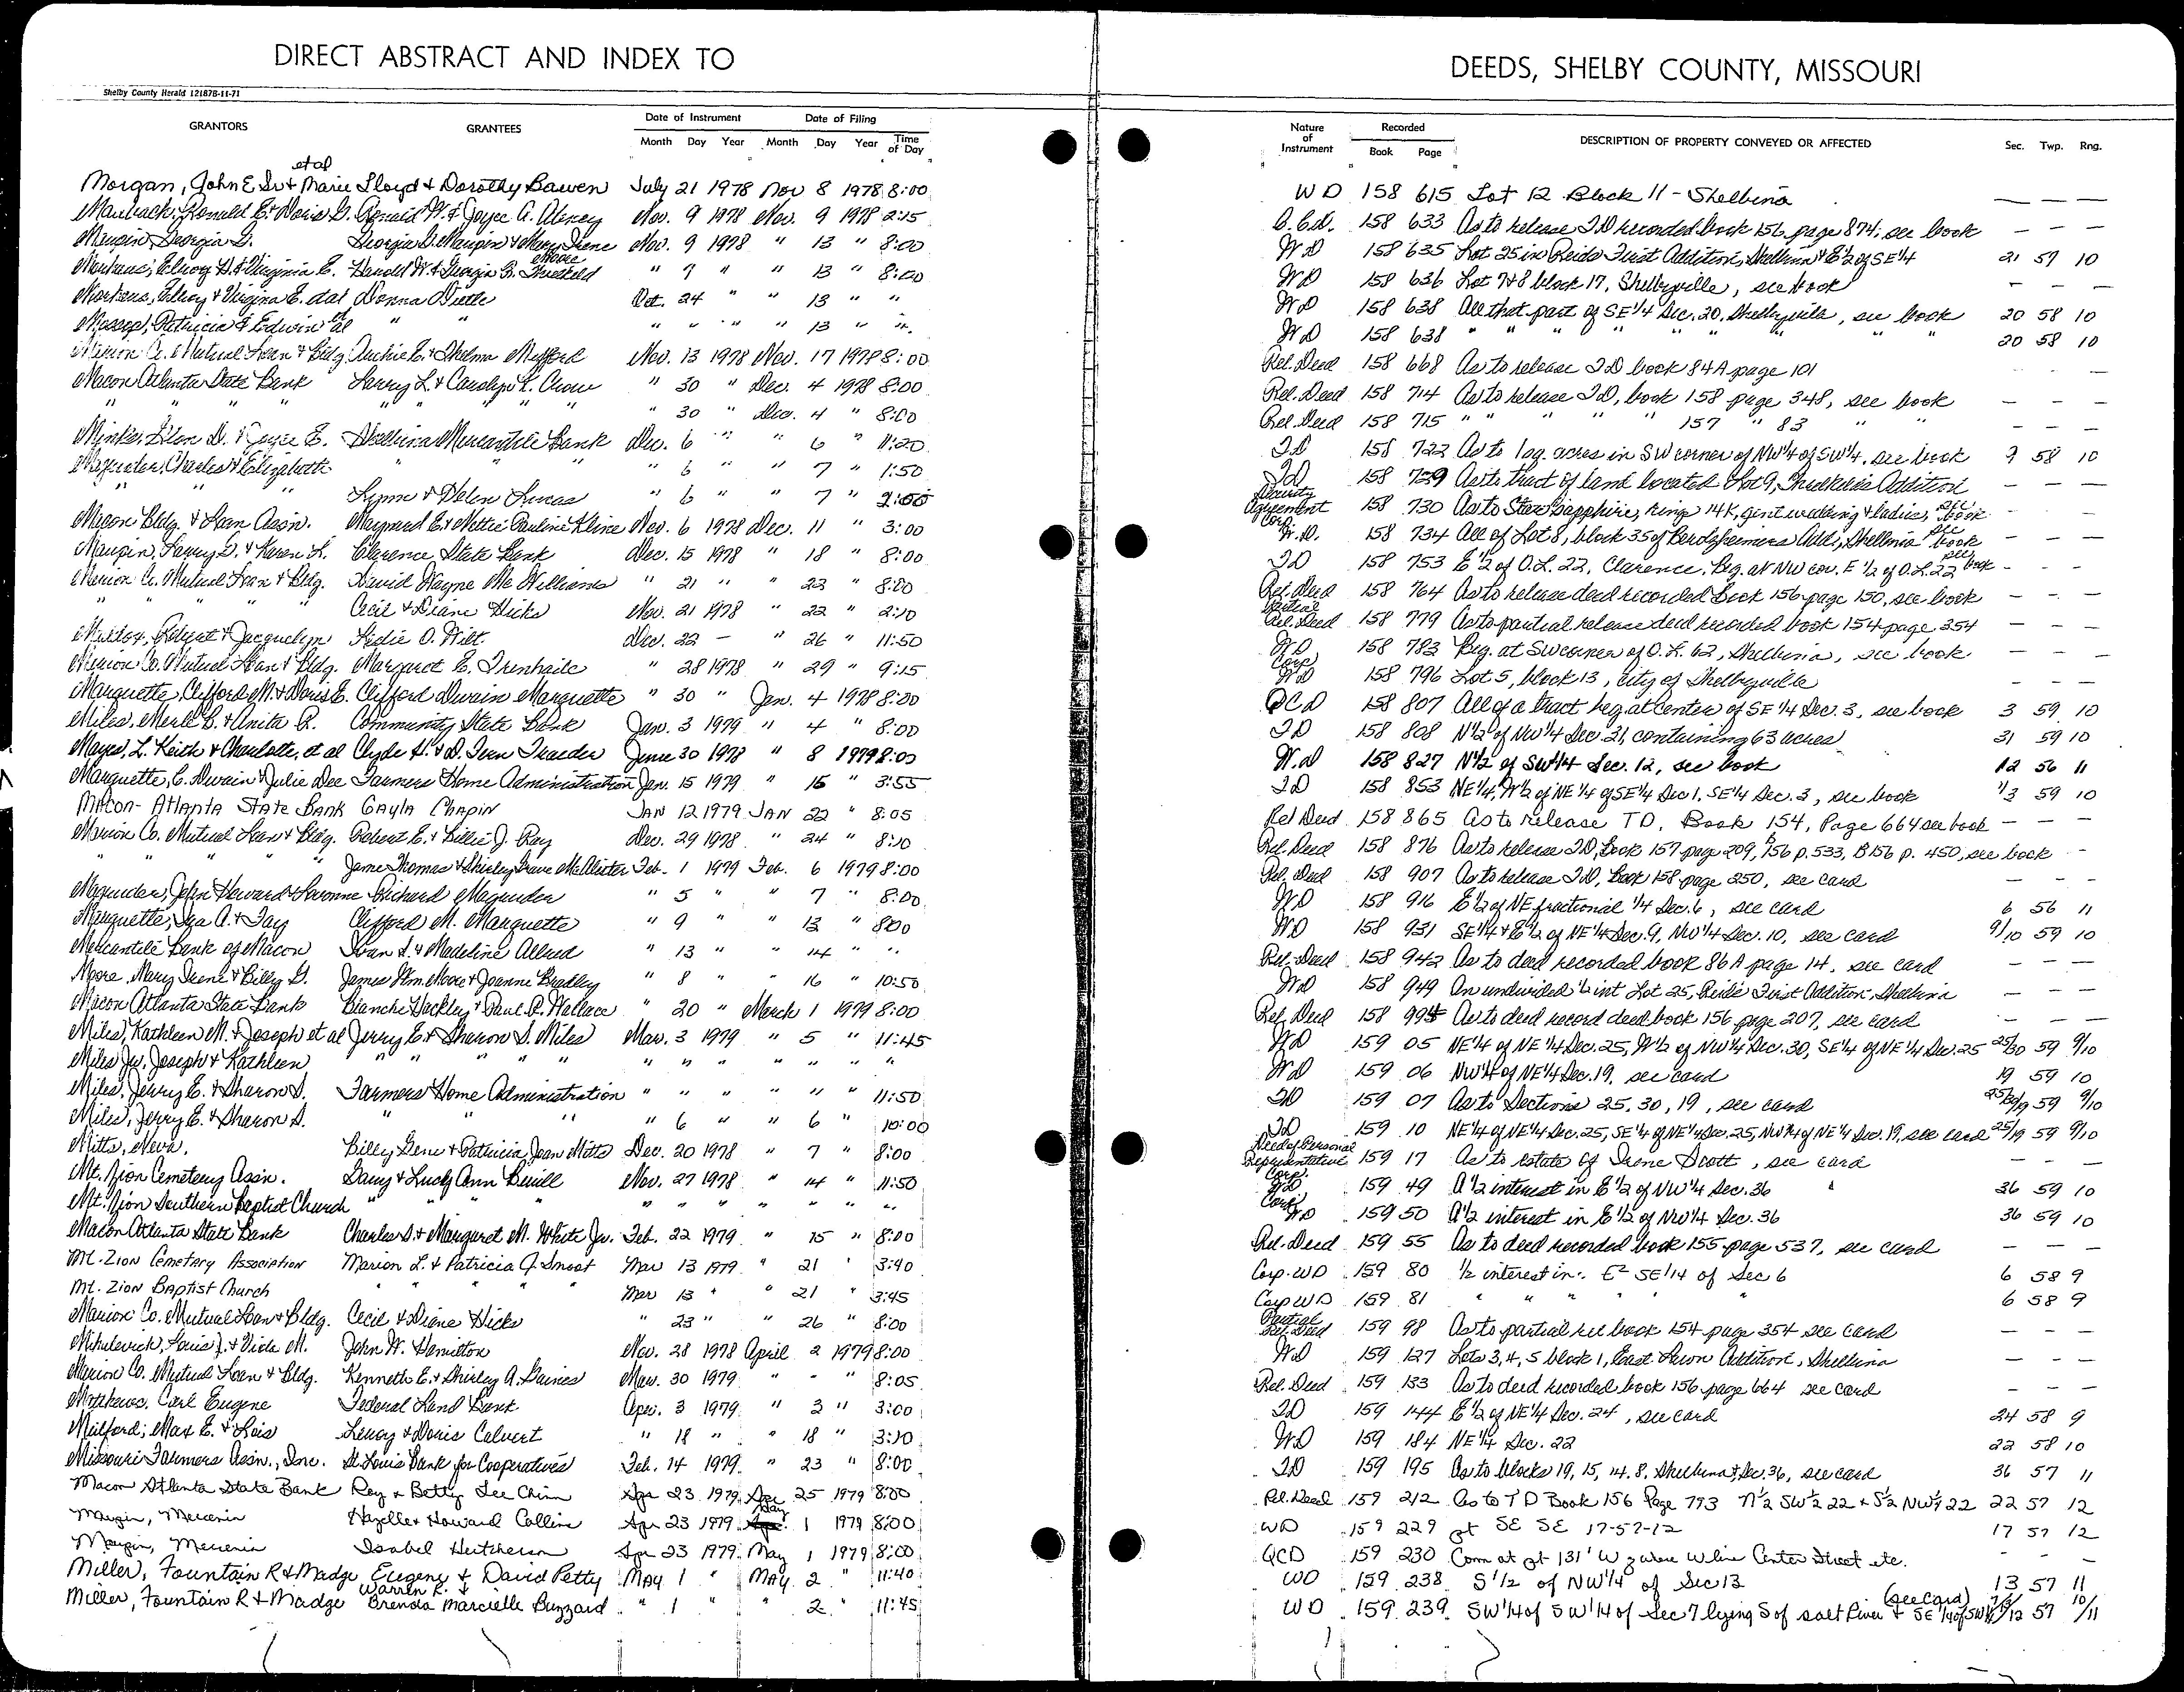 DIRECT ABSTRACT AND INDEX TO
Shelby County Herald 121878-11-71
GRANTORS GRANTEES Date of Instrument Date of Filing
Month Day Year Month Day Year Time of Day
et al
Morgan, John E Sr & Marie Lloyd & Dorothy Bawen July 21 1978 Nov 8 1978 8:00
Ronald E. & Doris G. Ronald W. & Joyce A. Nov. 9 1978 Nov. 9 1978 2:15
Maupin, Georgia D. Georgia D. Maupin & Mary Irene Nov. 9 1978 " 13 " 8:00
Moore
Elroy H. & Virginia E. Harold W. & Georgia B. Threlkeld " 7 " " 13 " 8:00
Elroy & Virgina E. et al Donna Oct. 24 " " 13 " "
Patricia & Edwin et al " " " " " " 13 " "
Marion Co. Mutual Loan & Bldg. Archie E. & Thelma Mefford Nov. 13 1978 Nov. 17 1978 8:00
Macon Atlanta State Bank Larry L. & Carolyn K. Crow " 30 " Dec. 4 1978 8:00
" " " " " " " " " 30 " Dec. 4 " 8:00
Glen D. & Joyce E. Shelbina Mercantile Bank Dec. 6 " " 6 " 11:20
Charles & Elizabeth " " " 6 " " 7 " 1:50
" " " Lynn & Helen Lucas " 6 " " 7 " 2:00
Macon Bldg. & Loan Assn. Maynard E. & Nettie Pauline Kline Nov. 6 1978 Dec. 11 " 3:00
Maupin, Larry D. & Karen K. Clarence State Bank Dec. 15 1978 " 18 " 8:00
Marion Co. Mutual Loan & Bldg. David Wayne Mc Williams " 21 " " 22 " 8:00
" " " " Cecil & Diane Hicks Nov. 21 1978 " 22 " 2:10
Robert & Jacquelyn Lydie O. Wilt. Dec. 22 — " 26 " 11:50
Marion Co. Mutual Loan & Bldg. Margaret E. Trenhaile " 28 1978 " 29 " 9:15
Marquette, Clifford M. & Doris E. Clifford Dwain Marquette " 30 " Jan. 4 1978 8:00
Miles, Merle B. & Anita R. Community State Bank Jan. 3 1979 " 4 " 8:00
Mayes, L. Keith & Charlotte, et al Clyde H. & D. Fern Traeder June 30 1978 " 8 1979 8:00
Marquette, C. Dwain & Julie Dee Farmers Home Administration Jan. 15 1979 " 15 " 3:55
Macon-Atlanta State Bank Gayla Chapin JAN 12 1979 JAN 22 " 8:05
Marion Co. Mutual Loan & Bldg. Robert E. & Billie J. Ray Dec. 29 1978 " 24 " 8:10
" " " " James Thomas & Shirley Grace McAllister Feb. 1 1979 Feb. 6 1979 8:00
Magruder, John Howard & Lavonne Richard Magruder " 5 " " 7 " 8:00
Marquette, Iza A. & Fay Clifford M. Marquette " 9 " " 13 " 8:00
Mercantile Bank of Macon Ivan L. & Madeline Allred " 13 " " 14 " "
Moore, Mary Irene & Billy G. James Wm. Moore & Joanne Bradley " 8 " " 16 " 10:50
Macon Atlanta State Bank Blanche Hackley & Paul R. Wallace " 20 " March 1 1979 8:00
Miles, Kathleen M. & Joseph et al Jerry E. & Sharon S. Miles Mar. 3 1979 " 5 " 11:45
Miles Jr., Joseph & Kathleen " " " " " " " " " "
Miles, Jerry E. & Sharon S. Farmers Home Administration " " " " " " 11:50
Miles, Jerry E. & Sharon S. " " " " 6 " " 6 " 10:00
Mitts, Neva. Billy Gene & Patricia Jean Mitts Dec. 20 1978 " 7 " 8:00
Mt. Zion Cemetery Assn. Gary & Lucy Ann Buill Nov. 27 1978 " 14 " 11:50
Mt. Zion Southern Baptist Church " " " " " " " " "
Macon Atlanta State Bank Charles D. & Margaret M. White Jr. Feb. 22 1979 " 15 " 8:00
Mt. Zion Cemetary Association Marion L. & Patricia J. Smoot Mar 13 1979 " 21 " 3:40
Mt. Zion Baptist Church " " " " Mar 13 " " 21 " 3:45
Marion Co. Mutual Loan & Bldg. Cecil & Diane Hicks " 23 " " 26 " 8:00
Mihulevich, Louis J. & Vida M. John W. Hamilton Nov. 28 1978 April 2 1979 8:00
Marion Co. Mutual Loan & Bldg. Kenneth E. & Shirley A. Gaines Mar. 30 1979 " " " 8:05
Mathews, Carl Eugene Federal Land Bank Apr. 3 1979 " 3 " 3:00
Milford, Max E. & Lois Leroy & Doris Calvert " 18 " " 18 " 3:10
Missouri Farmers Assn., Inc. St. Louis Bank for Cooperatives Feb. 14 1979 " 23 " 8:00
Macon Atlanta State Bank Roy & Betty Lee Chinn Apr 23 1979 Apr 25 1979 8:00
Maupin, Mercenia Hazelle & Howard Collins Apr 23 1979 May 1 1979 8:00
Maupin, Mercenia Isabel Hutcherson Apr 23 1979 May 1 1979 8:00
Miller, Fountain R & Madge Eugene & David Petty MAY 1 " MAY 2 " 11:40
Warren R. &
Miller, Fountain R & Madge Brenda Marcielle Buzzard " 1 " " 2 " 11:45
DEEDS, SHELBY COUNTY, MISSOURI
Nature of Instrument Recorded Book Page DESCRIPTION OF PROPERTY CONVEYED OR AFFECTED Sec. Twp. Rng.
WD 158 615 Lot 12 Block 11 - Shelbina — — —
158 633 As to release TD recorded book 156 page 874, see book — — —
WD 158 635 Lot 25 in Reids First Addition, Shelbina & E½ of SE¼ 21 57 10
WD 158 636 Lot 7&8 block 17, Shelbyville, see book — — —
WD 158 638 All that part of SE¼ Sec. 20, Shelbyville, see book 20 58 10
WD 158 638 " " " " " " " " 20 58 10
Rel. Deed 158 668 As to release TD book 84A page 101 — — —
Rel. Deed 158 714 As to release TD, book 158 page 348, see book — — —
Rel. Deed 158 715 " " " " 157 " 83 " " — — —
TD 158 722 As to 1 ag. acres in SW corner of NW¼ of SW¼, see book 9 58 10
TD 158 729 As to tract of land located Lot 9, Threlkelds Addition — — —
Security Agreement 158 730 As to Star sapphire, ring 14K, gent wedding & ladies, see book — — —
Corp. W.D. 158 734 All of Lot 8, block 35 of Berdzheimers Add., Shelbina see book — — —
TD 158 753 E½ of O.L. 22, Clarence, Beg. at NW cor. E ½ of O.L. 22 see book - - -
Rel. Deed 158 764 As to release deed recorded book 156 page 150, see book — — —
Partial Rel. Deed 158 779 As to partial release deed recorded book 154 page 354 — — —
WD 158 783 Beg. at SW corner of O.L. 62, Shelbina, see book — — —
Corp WD 158 796 Lot 5, block 13, city of Shelbyville — — —
QCD 158 807 All of a tract beg. at center of SE ¼ Sec. 3, see book 3 59 10
TD 158 808 N½ of NW¼ Sec. 31, containing 63 acres 31 59 10
W.D 158 827 N½ of SW¼ Sec. 12, see book 12 56 11
TD 158 853 NE¼, W½ of NE ¼ of SE¼ Sec 1, SE¼ Sec. 3, see book 1/3 59 10
Rel Deed 158 865 As to release TD, Book 154, Page 664 see book — — —
Rel. Deed 158 876 As to release TD, Book 157 page 209, B156 p. 533, B156 p. 450, see book -
Rel. Deed 158 907 As to release TD, Book 158 page 250, see card — — —
WD 158 916 E½ of NE fractional ¼ Sec. 6, see card 6 56 11
WD 158 931 SE¼ & E½ of NE¼ Sec. 9, NW¼ Sec. 10, see card 9/10 59 10
Rel. Deed 158 942 As to deed recorded book 86A page 14, see card — — —
WD 158 949 An undivided ½ int Lot 25, Reids First Addition, Shelbina — — —
Rel. Deed 158 994 As to deed record deed book 156 page 207, see card — — —
WD 159 05 NE¼ of NE ¼ Sec. 25, W½ of NW¼ Sec. 30, SE¼ of NE ¼ Sec. 25 25/30 59 9/10
WD 159 06 NW¼ of NE¼ Sec. 19, see card 19 59 10
TD 159 07 As to Sections 25, 30, 19, see card 25/30/19 59 9/10
TD 159 10 NE¼ of NE¼ Sec. 25, SE¼ of NE¼ Sec. 25, NW¼ of NE¼ Sec. 19, see card 25/19 59 9/10
Deed of Personal Representative 159 17 As to estate of Irene Scott, see card — — —
Corp. WD 159 49 A ½ interest in E½ of NW¼ Sec. 36 36 59 10
Corp WD 159 50 A ½ interest in E½ of NW¼ Sec. 36 36 59 10
Rel. Deed 159 55 As to deed recorded book 155 page 537, see card — — —
Corp-WD 159 80 ½ interest in: E² SE/14 of Sec 6 6 58 9
Corp WD 159 81 " " " " " 6 58 9
Partial Rel. Deed 159 98 As to partial rel book 154 page 354 see card — — —
WD 159 127 Lots 3, 4, 5 block 1, East Lawn Addition, Shelbina — — —
Rel. Deed 159 133 As to deed recorded book 156 page 664 see card — — —
TD 159 144 E½ of NE¼ Sec. 24, see card 24 58 9
WD 159 184 NE¼ Sec. 22 22 58 10
TD 159 195 As to blocks 19, 15, 14, 8, Shelbina & Sec. 36, see card 36 57 11
Rel. Deed 159 212 As to TD Book 156 Page 793 N½ SW½ 22 & S½ NW¼ 22 22 57 12
WD 159 229 pt SE SE 17-57-12 17 57 12
QCD 159 230 Com at pt 131' W where W line Center Street etc. - - -
WD 159 238 S½ of NW¼ of Sec 13 13 57 11
WD 159 239 SW¼ of SW¼ of Sec 7 lying S of salt River & SE ¼ of SW¼ (see card) 7/12 57 10/11